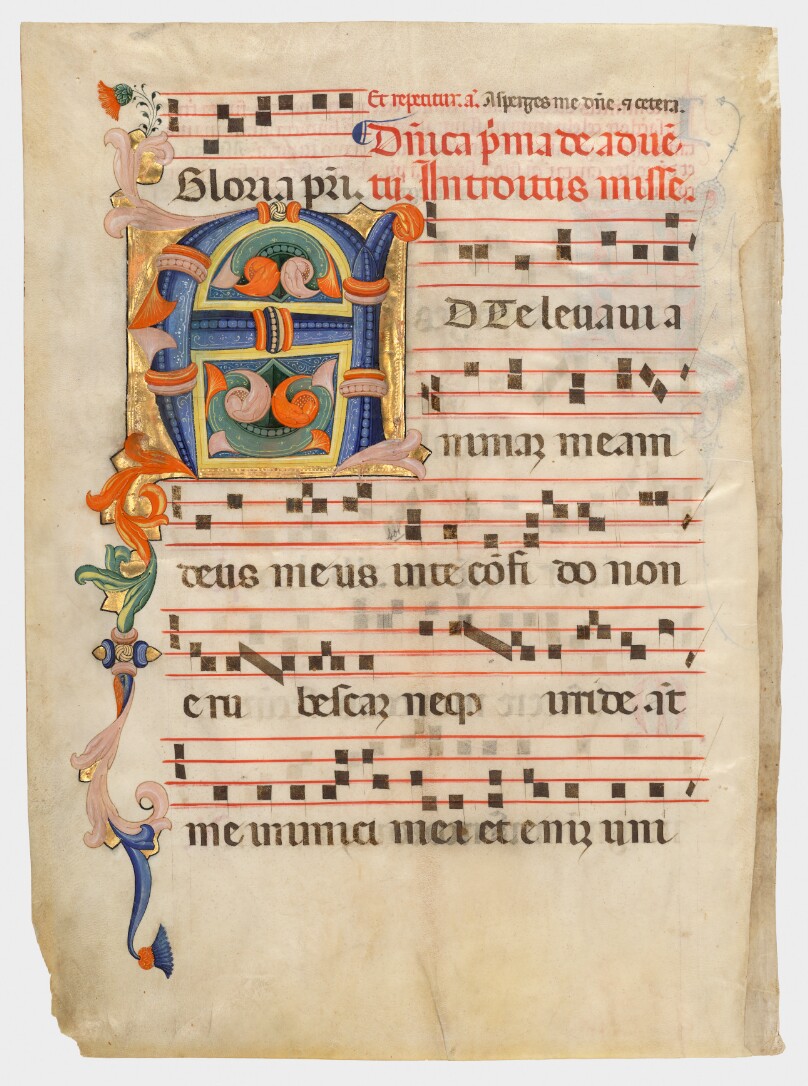 Et repetitur. a͞. Asperges me dn̄e. ⁊ cetera.
Dn̄ica p̄ma de adue͞.
Gloria pr̄i. tu. Introitus misse.
AD Te leuaui a
nimaꝫ meam
deus meus inte co͞fi do non
eru bescaꝫ neqꝫ irride a͞t
me inimici mei et eniꝫ uni